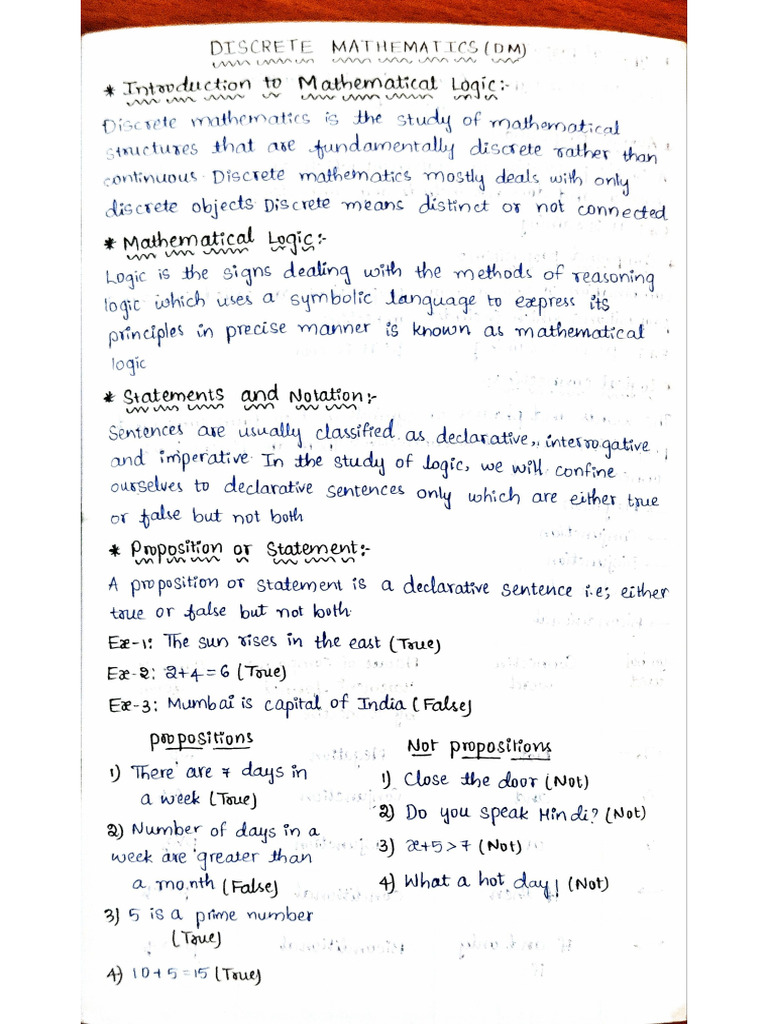 DISCRETE MATHEMATICS (DM)
* Introduction to Mathematical Logic:-
Discrete mathematics is the study of mathematical
structures that are fundamentally discrete rather than
continuous. Discrete mathematics mostly deals with only
discrete objects Discrete means distinct or not connected
* Mathematical Logic:-
Logic is the signs dealing with the methods of reasoning
logic which uses a symbolic language to express its
principles in precise manner is known as mathematical
logic
* Statements and Notation:-
Sentences are usually classified as declarative, interrogative
and imperative. In the study of logic, we will confine
ourselves to declarative sentences only which are either true
or false but not both
* Proposition or Statement:-
A proposition or statement is a declarative sentence i.e; either
true or false but not both.
Ex-1: The sun rises in the east (True)
Ex-2: 2+4=6 (True)
Ex-3: Mumbai is capital of India (False)
propositions
1) There are 7 days in
a week (True)
2) Number of days in a
week are greater than
a month (False)
3) 5 is a prime number
(True)
4) 10+5=15 (True)
Not propositions
1) Close the door (Not)
2) Do you speak Hindi? (Not)
3) x+5>7 (Not)
4) What a hot day! (Not)